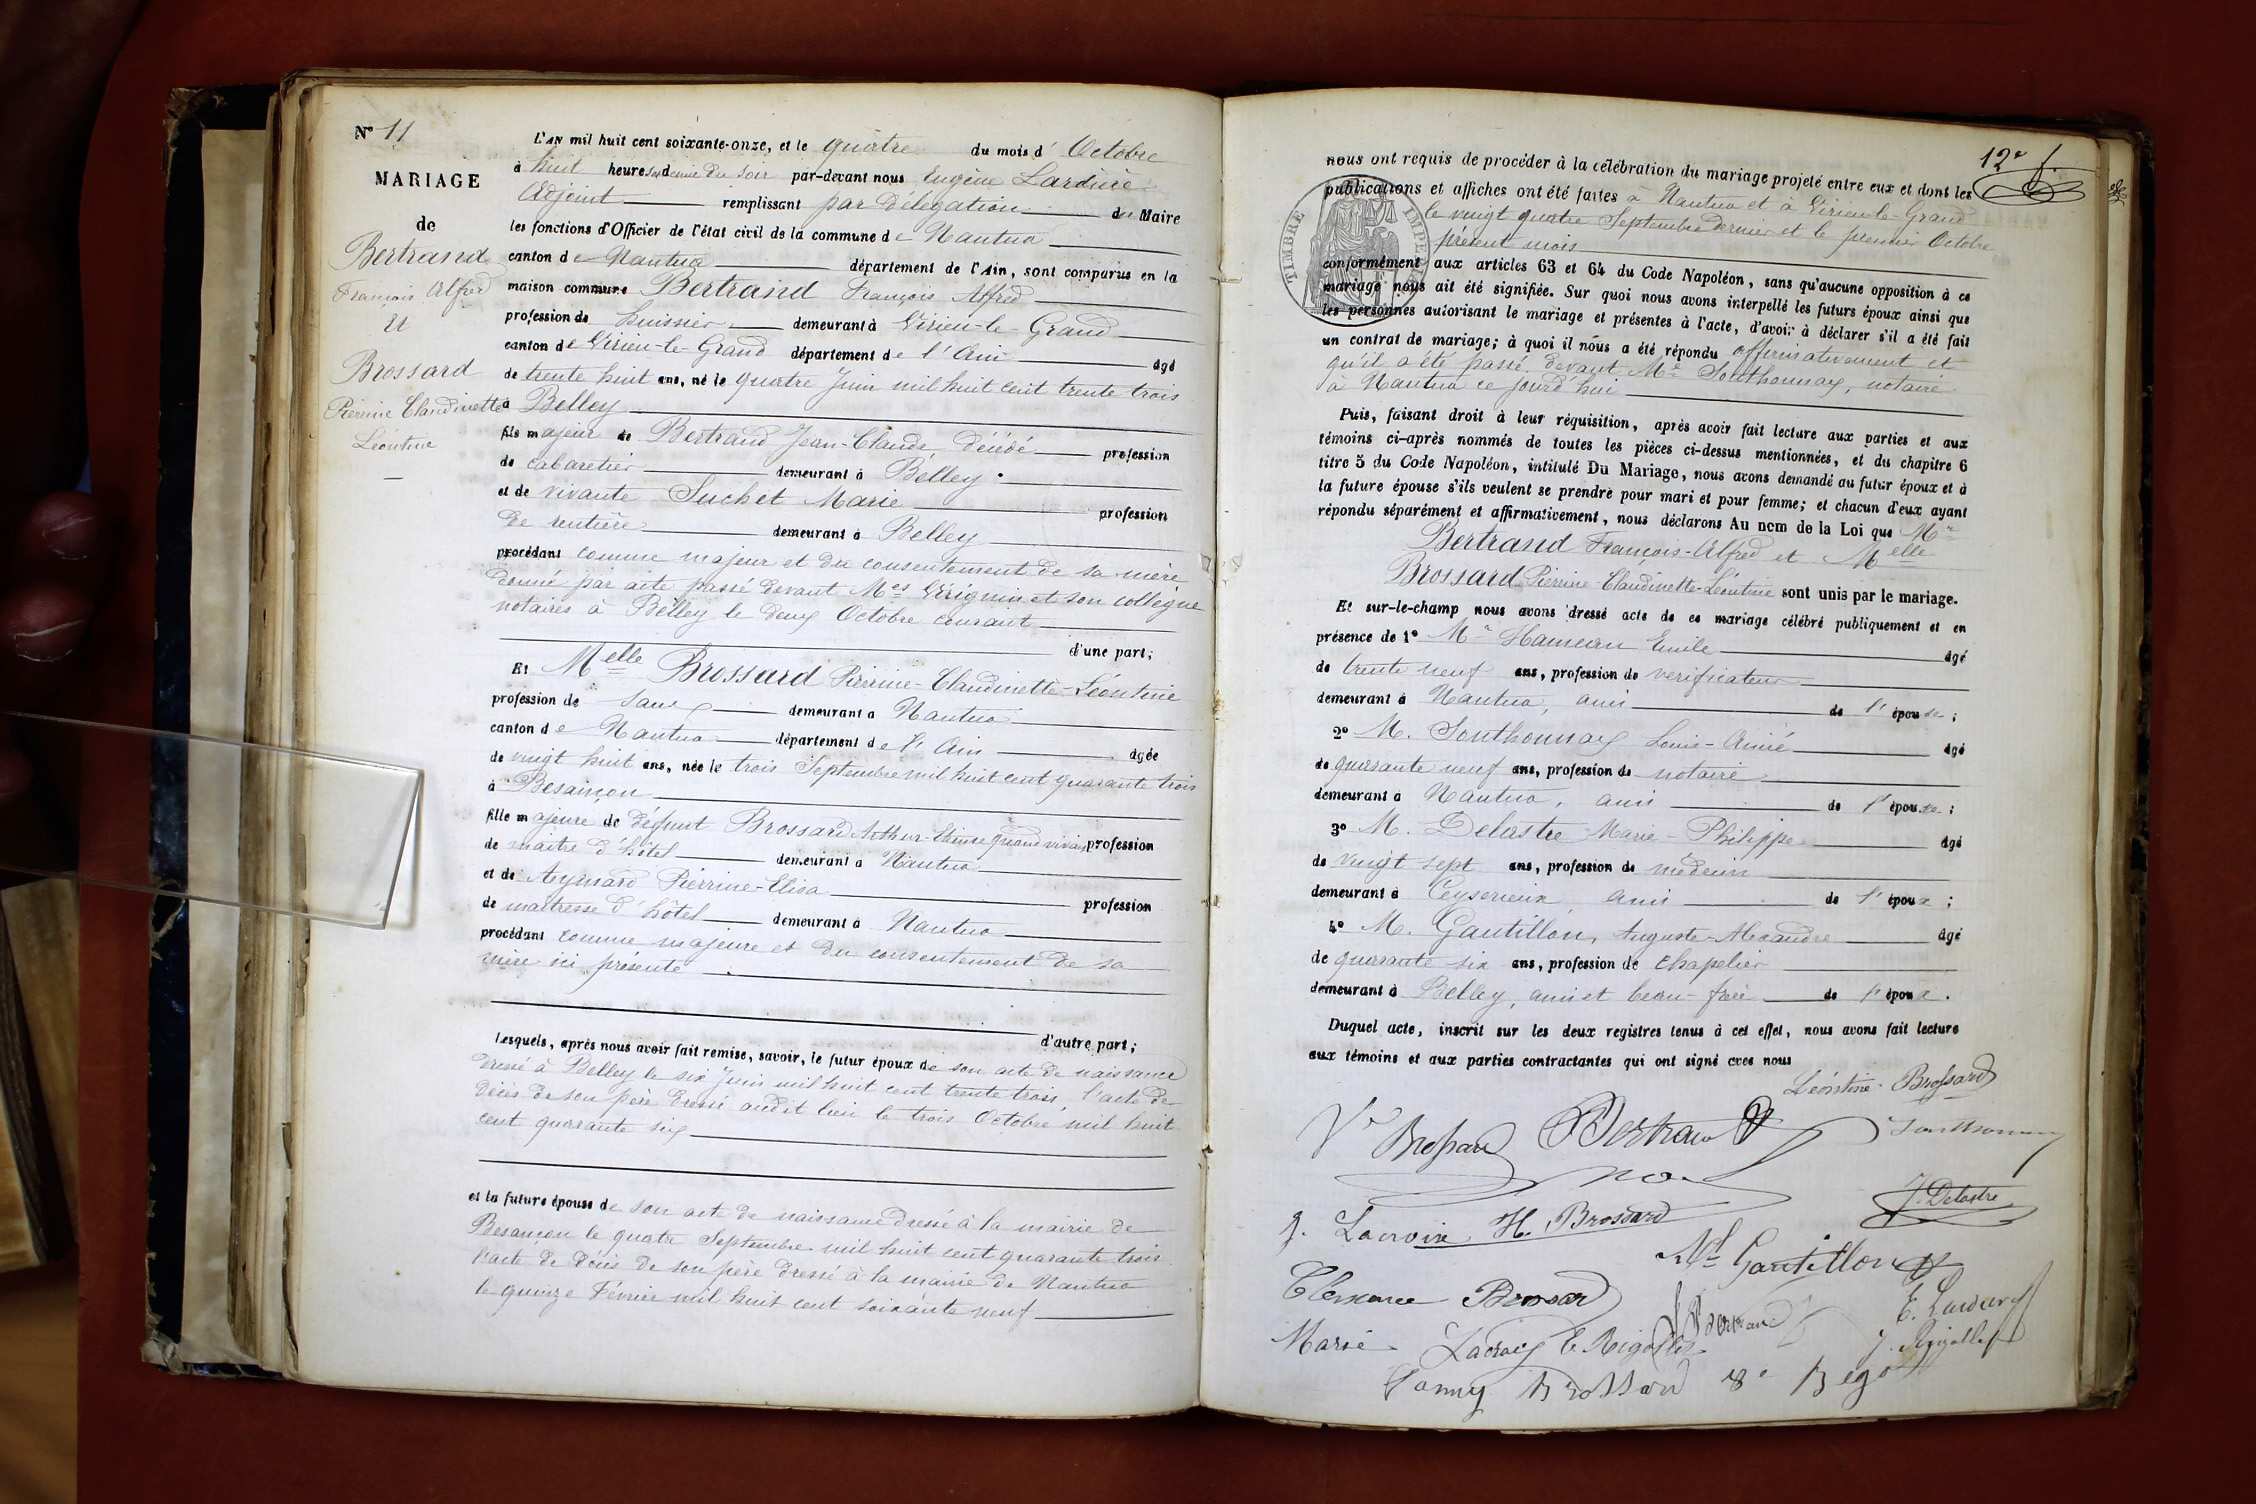 N° 11
MARIAGE
de
Bertrand
François Alfred
Et
Brossard
Pierrine Claudinette
Léontine
L'AN mil huit cent soixante-onze, et le quatre du mois d'Octobre
à huit heures et demie du soir par-devant nous Eugène
Adjoint remplissant par Délégation du Maire
les fonctions d'Officier de l'état civil de la commune de Nantua
canton de Nantua département de l'Ain, sont comparus en la
maison commune Bertrand François Alfred
profession de huissier demeurant à Virieu-le-Grand
canton de Virieu-le-Grand département de l'Ain âgé
de trente huit ans, né le quatre Juin mil huit cent trente trois
à Belley
fils majeur de Bertrand Jean-Claude, Décédé profession
de cabaretier demeurant à Belley
et de vivante Suchet Marie profession
de rentière demeurant à Belley
procédant comme majeur et du consentement de sa mère
donné par acte passé devant Mes et son collègue
notaires à Belley le deux Octobre courant
d'une part;
Et Melle Brossard Pierrine-Claudinette-Léontine
profession de sans demeurant à Nantua
canton de Nantua département de l'Ain âgée
de vingt huit ans, née le trois Septembre mil huit cent quarante trois
à Besançon
fille majeure de défunt Brossard Arthur- quand vivait profession
de maître d'hôtel demeurant à Nantua
et de Aynard Pierrine-Elisa profession
de maîtresse d'hôtel demeurant à Nantua
procédant comme majeure et du consentement de sa
mère ici présente
d'autre part;
Lesquels, après nous avoir fait remise, savoir, le futur époux de son acte de naissance
dressé à Belley le six Juin mil huit cent trente trois, l'acte de
décès de son père dressé audit lieu le trois Octobre mil huit
cent quarante six
et la future épouse de son acte de naissance dressé à la mairie de
Besançon le quatre Septembre mil huit cent quarante trois
l'acte de décès de son père dressé à la mairie de Nantua
le quinze Février mil huit cent soixante neuf
12e f.
nous ont requis de procéder à la célébration du mariage projeté entre eux et dont les
publications et affiches ont été faites à Nantua et à Virieu-le-Grand
le vingt quatre Septembre dernier et le premier Octobre
présent mois
TIMBRE IMPERIAL
conformément aux articles 63 et 64 du Code Napoléon, sans qu'aucune opposition à ce
mariage nous ait été signifiée. Sur quoi nous avons interpellé les futurs époux ainsi que
les personnes autorisant le mariage et présentes à l'acte, d'avoir à déclarer s'il a été fait
un contrat de mariage; à quoi il nous a été répondu affirmativement et
qu'il a été passé devant Me Southonnax, notaire
à Nantua ce jourd'hui
Puis, faisant droit à leur réquisition, après avoir fait lecture aux parties et aux
témoins ci-après nommés de toutes les pièces ci-dessus mentionnées, et du chapitre 6
titre 5 du Code Napoléon, intitulé Du Mariage, nous avons demandé au futur époux et à
la future épouse s'ils veulent se prendre pour mari et pour femme; et chacun d'eux ayant
répondu séparément et affirmativement, nous déclarons Au nom de la Loi que Mr
Bertrand François-Alfred et Melle
Brossard Pierrine-Claudinette-Léontine sont unis par le mariage.
Et sur-le-champ nous avons dressé acte de ce mariage célébré publiquement et en
présence de 1° Mr Hameau Emile âgé
de trente neuf ans, profession de vérificateur
demeurant à Nantua, ami de l'épouse;
2° M. Southonnax Louis-Aimé âgé
de quarante neuf ans, profession de notaire
demeurant à Nantua, ami de l'épouse;
3° M. Delastre Marie-Philippe âgé
de vingt sept ans, profession de médecin
demeurant à Ceyserieux ami de l'époux;
4° M. Gautillon, Auguste-Alexandre âgé
de quarante six ans, profession de Chapelier
demeurant à Belley, ami et beau-frère de l'époux.
Duquel acte, inscrit sur les deux registres tenus à cet effet, nous avons fait lecture
aux témoins et aux parties contractantes qui ont signé avec nous
Léontine Brossard
Ve Brossard Bertrand Southonnax
J. Delastre
J. Lacroix H. Brossard
Gautillon
Clémence Brossard
Marie Lacroix E Rigollet
Fanny Brossard